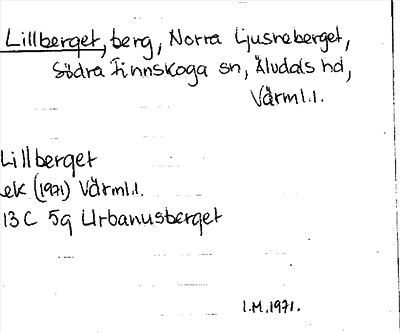 Lillberget, berg, Norra Ljusneberget,
Södra Finnskoga sn, Älvdals hd,
Värml.l.
Lillberget
ek (1971) Värml.l.
13 C 5g Urbanusberget
I.M.1971.